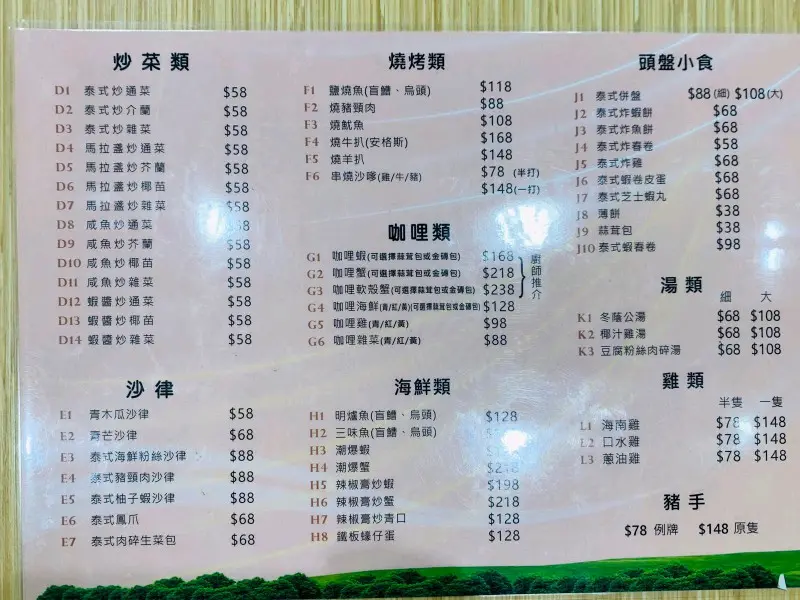 炒菜類
D1 泰式炒通菜 $58
D2 泰式炒介蘭 $58
D3 泰式炒雜菜 $58
D4 馬拉盞炒通菜 $58
D5 馬拉盞炒芥蘭 $58
D6 馬拉盞炒椰苗 $58
D7 馬拉盞炒雜菜 $58
D8 咸魚炒通菜
D9 咸魚炒芥蘭 $58
D10 咸魚炒椰苗 $58
D11 咸魚炒雜菜 $58
D12 蝦醬炒通菜 $58
D13 蝦醬炒椰苗 $58
D14 蝦醬炒雜菜 $58
沙律
E1 青木瓜沙律 $58
E2 青芒沙律 $68
E3 泰式海鮮粉絲沙律 $88
E4 泰式豬頸肉沙律 $88
E5 泰式柚子蝦沙律 $88
E6 泰式鳳爪 $68
E7 泰式肉碎生菜包 $68
燒烤類
F1 鹽燒魚(盲鰽、烏頭) $118
F2 燒豬頸肉 $88
F3 燒魷魚 $108
F4 燒牛扒(安格斯) $168
F5 燒羊扒 $148
F6 串燒沙嗲(雞/牛/豬) $78 (半打)
$148(一打)
咖哩類
G1 咖哩蝦(可選擇蒜茸包或金磚包) $168
G2 咖哩蟹(可選擇蒜茸包或金磚包) $218
G3 咖哩軟殼蟹(可選擇蒜茸包或金磚包) $238
廚師推介
G4 咖哩海鮮(青/紅/黃)(可選擇蒜茸包或金磚包) $128
G5 咖哩雞(青/紅/黃) $98
G6 咖哩雜菜(青/紅/黃) $88
海鮮類
H1 明爐魚(盲鰽、烏頭) $128
H2 三味魚(盲鰽、烏頭)
H3 潮爆蝦
H4 潮爆蟹 $218
H5 辣椒膏炒蝦 $198
H6 辣椒膏炒蟹 $218
H7 辣椒膏炒青口 $128
H8 鐵板蠔仔蛋 $128
頭盤小食
J1 泰式併盤 $88(細) $108(大)
J2 泰式炸蝦餅 $68
J3 泰式炸魚餅 $68
J4 泰式炸春卷 $58
J5 泰式炸雞 $68
J6 泰式蝦卷皮蛋 $68
J7 泰式芝士蝦丸 $68
J8 薄餅 $38
J9 蒜茸包 $38
J10 泰式蝦春卷 $98
湯類
細 大
K1 冬蔭公湯 $68 $108
K2 椰汁雞湯 $68 $108
K3 豆腐粉絲肉碎湯 $68 $108
雞類
半隻 一隻
L1 海南雞 $78 $148
L2 口水雞 $78 $148
L3 蔥油雞 $78 $148
豬手
$78 例牌 $148 原隻